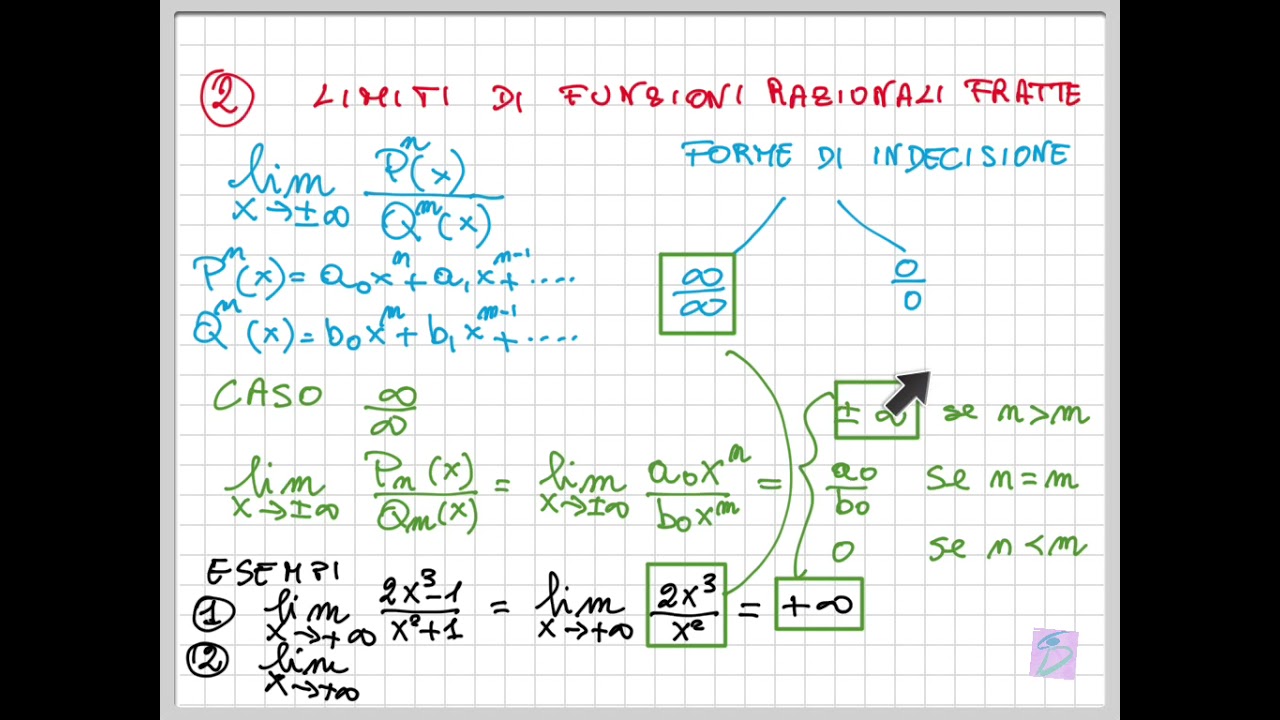 ② LIMITI DI FUNZIONI RAZIONALI FRATTE
lim x→±∞ Pⁿ(x)/Qᵐ(x)
FORME DI INDECISIONE
∞/∞ 0/0
Pⁿ(x) = a₀xⁿ + a₁xⁿ⁻¹ + ....
Qᵐ(x) = b₀xᵐ + b₁xᵐ⁻¹ + ....
CASO ∞/∞
lim x→±∞ Pₙ(x)/Qₘ(x) = lim x→±∞ a₀xⁿ/b₀xᵐ =
± ∞ se n>m
a₀/b₀ se n=m
0 se n<m
ESEMPI
① lim x→+∞ 2x³-1/x²+1 = lim x→+∞ 2x³/x² = +∞
② lim x→+∞